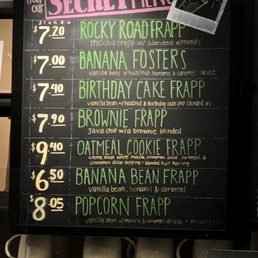 SECRET
$7.20 ROCKY ROAD FRAPP
mocha frapp w/ blended almonds
$7.00 BANANA FOSTERS
vanilla bean w/ hazelnut, banana & caramel sauce
$7.40 BIRTHDAY CAKE FRAPP
vanilla bean w/ hazelnut & birthday cake pop blended in
$7.90 BROWNIE FRAPP
Java chip w/ a brownie blended
$9.40 OATMEAL COOKIE FRAPP
creme base white mocha, cinnamon dolce, oatmeal &
cinnamon dolce topping + blended fruit
$6.50 BANANA BEAN FRAPP
vanilla bean, banana & caramel
$8.05 POPCORN FRAPP
vanilla bean w/ mocha & caramel drizzle +